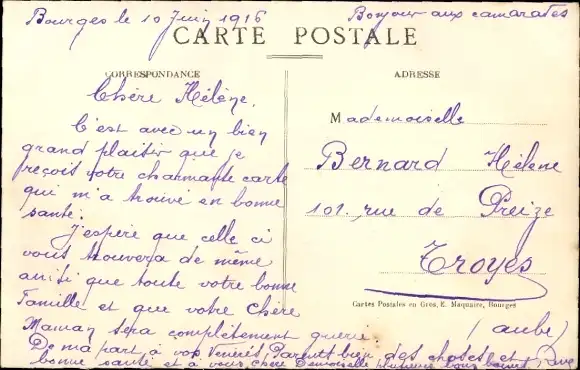 Bourges le 10 Juin 1916
Bonjour aux camarades
CARTE POSTALE
CORRESPONDANCE
Chère Hélène,
C'est avec un bien
grand plaisir que je
reçois votre charmante carte
qui m'a trouvé en bonne
santé.
J'espère que celle ci
vous trouvera de même
ainsi que toute votre bonne
Famille et que votre Chère
Maman sera complètement guérie.
De ma part à vos Vénérés Parents bien des choses et
bonne santé et à vous, chère Demoiselle plusieurs bons baisers,
ADRESSE
Mademoiselle
Bernard Hélène
101. rue de Preize
Troyes
Cartes Postales en Gros, E. Maquaire, Bourges
(aube)